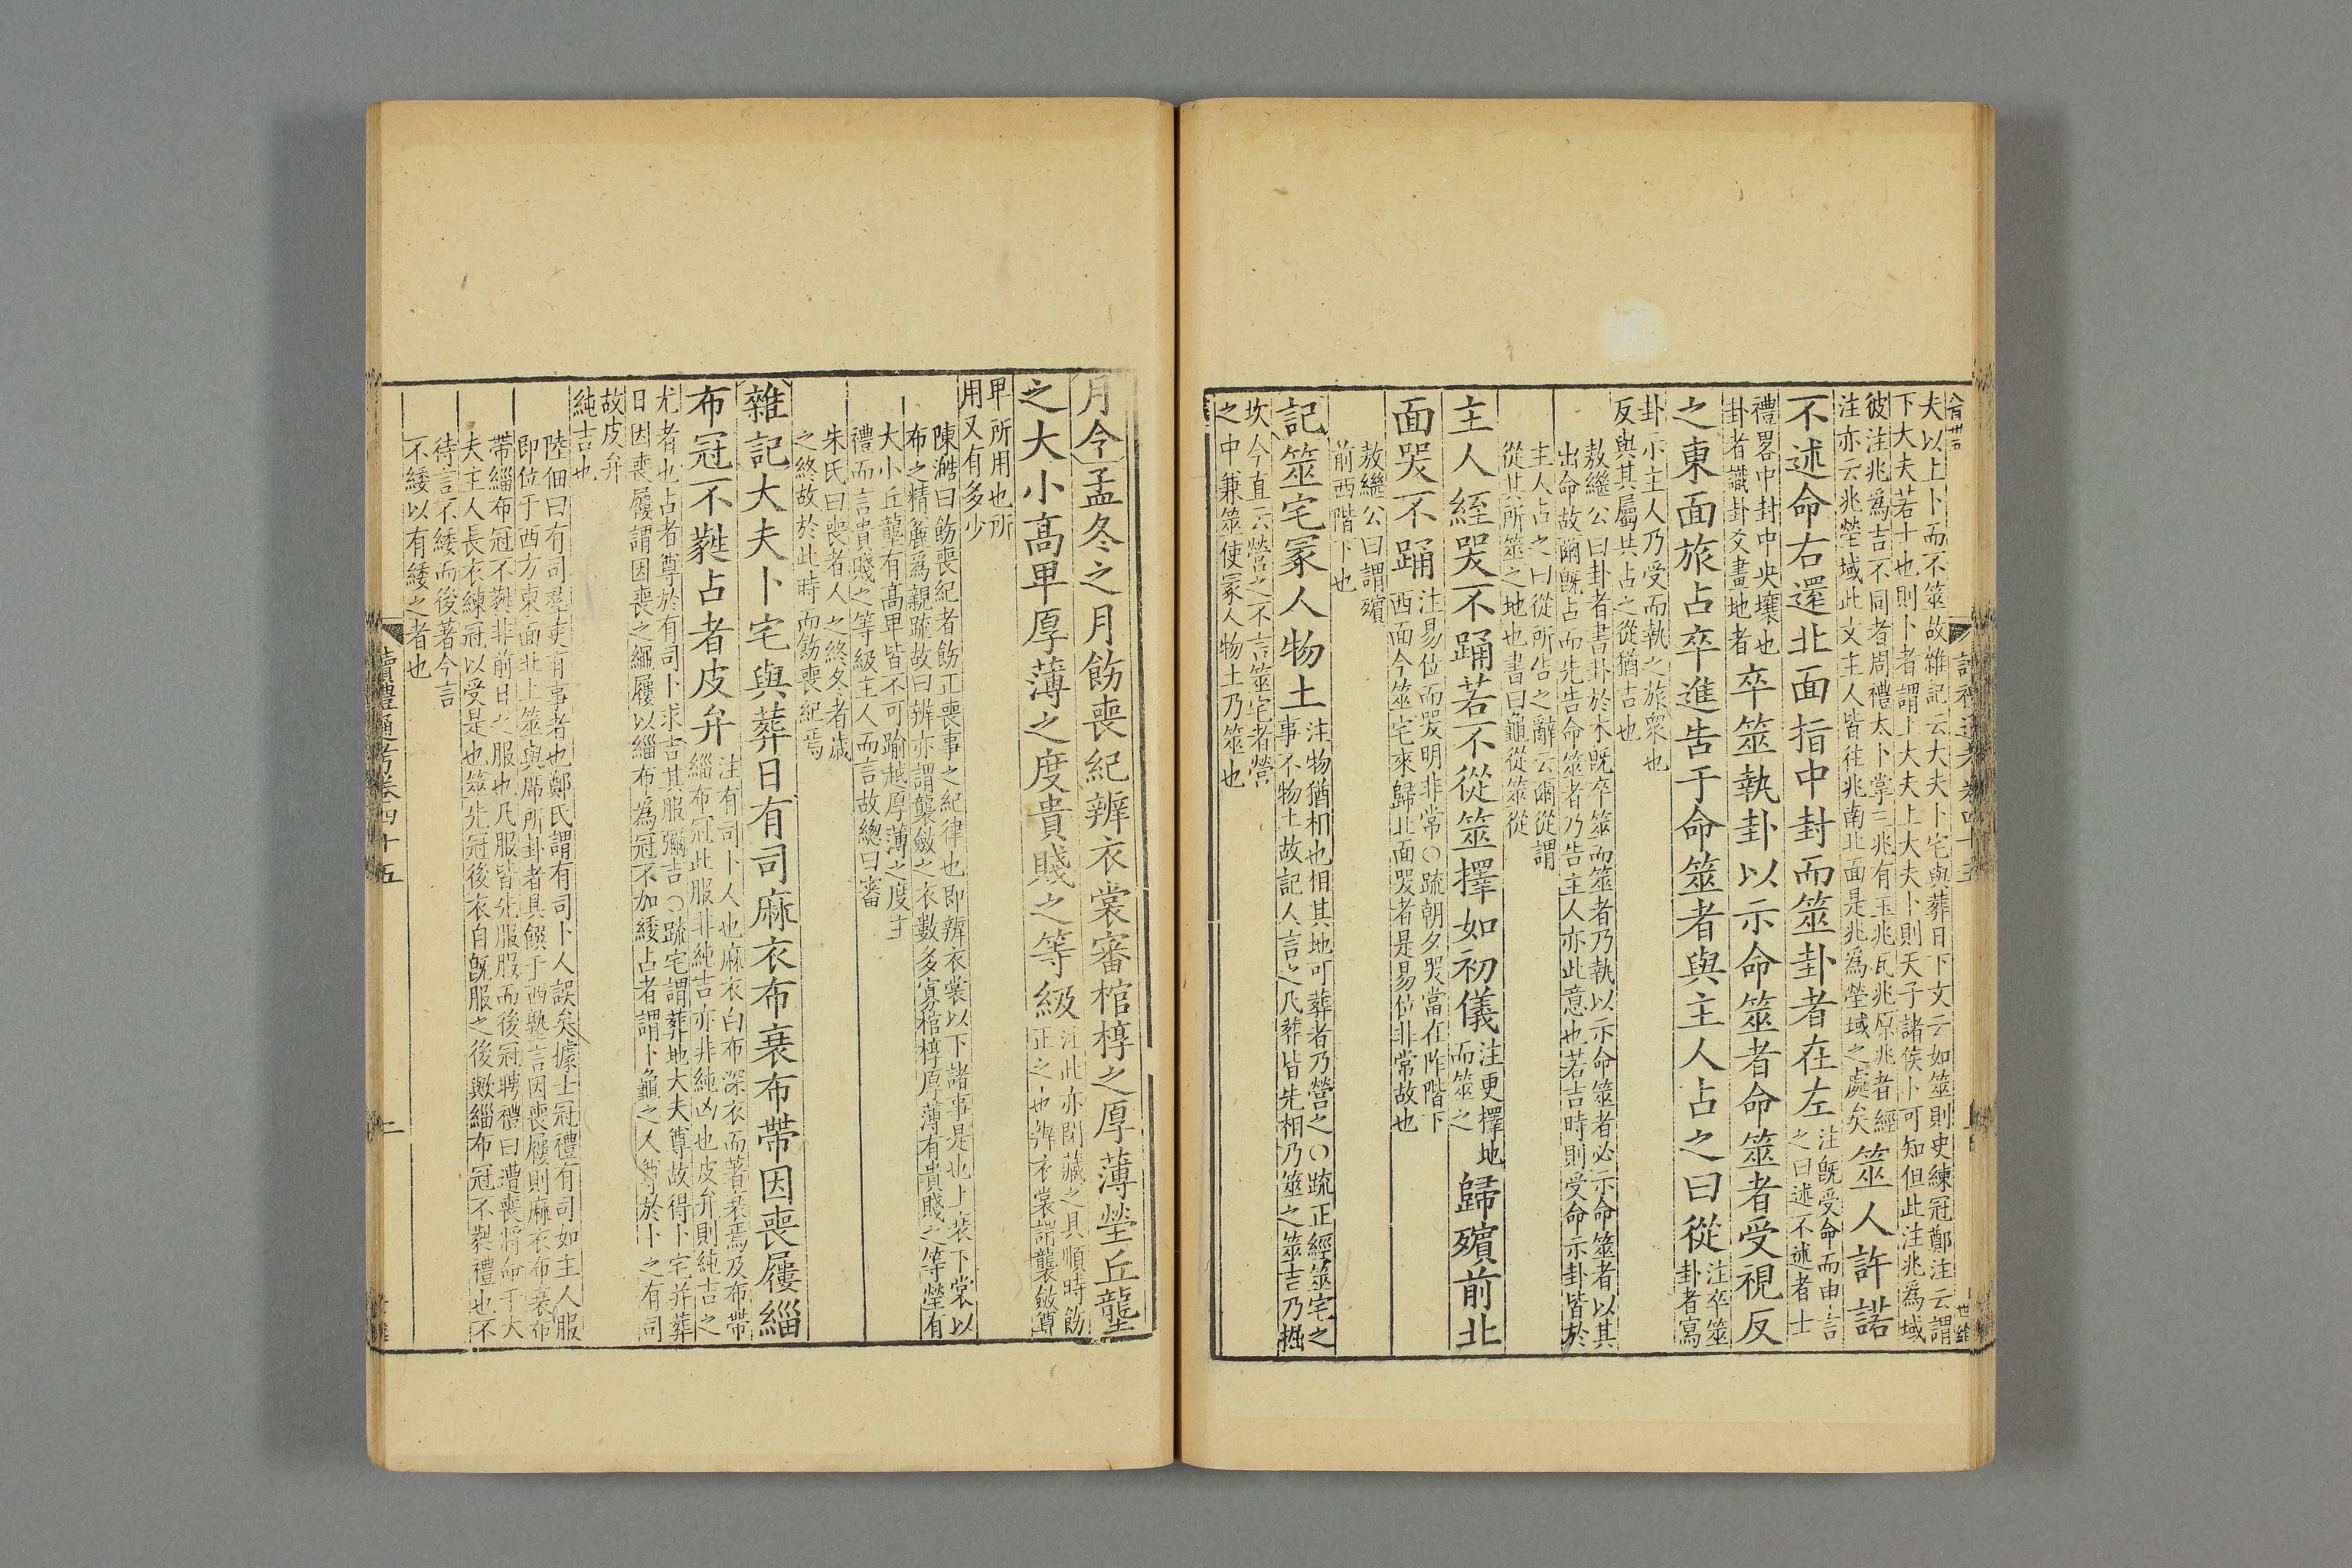 夫以上卜而不筮故雜記云大夫卜宅與葬日下文云如筮則史練冠鄭注云謂
下大夫若士也則卜者謂上大夫上大夫卜則天子諸侯卜可知但此注兆為域
彼注兆爲吉不同者周禮太卜掌三兆有玉兆瓦兆原兆者經
注亦云兆塋域此文主人皆往兆南北面是兆爲塋域之處矣
筮人許諾
不述命右還北面指中封而筮卦者在左
注既受命而申言
之曰述不述者士
禮畧中封中央壤也
卦者識卦爻畫地者
卒筮執卦以示命筮者命筮者受視反
之東面旅占卒進告于命筮者與主人占之曰從
注卒筮
卦者寫
卦示主人乃受而執之旅衆也
反與其屬共占之從猶吉也
敖繼公曰卦者書卦於木既卒筮而筮者乃執以示命筮者必示命筮者以其
出命故爾既占而先告命筮者乃告主人亦此意也若吉時則受命示卦皆於
主人占之曰從所告之辭云爾從謂
從其所筮之地也書曰龜從筮從
主人絰哭不踊若不從筮擇如初儀
注更擇地
而筮之
歸殯前北
面哭不踊
注易位而哭明非常○疏朝夕哭當在阼階下
西面今筮宅來歸北面哭者是易位非常故也
敖繼公曰謂殯
前西階下也
記筮宅冢人物土
注物猶相也相其地可葬者乃營之○疏正經筮宅之
事不物土故記人言之凡葬皆先相乃筮之筮吉乃掘
坎今直云營之不言筮宅者營
之中兼筮使冢人物土乃筮也
月令孟冬之月飭喪紀辨衣裳審棺椁之厚薄塋丘壟
之大小高卑厚薄之度貴賤之等級
注此亦閉藏之具順時飭
正之也辨衣裳謂襲斂尊
卑所用也所
用又有多少
陳澔曰飭喪紀者飭正喪事之紀律也即辨衣裳以下諸事是也上衰下裳以
布之精麤爲親疏故曰辨亦謂襲斂之衣數多寡棺椁厚薄有貴賤之等塋有
大小丘壟有高卑皆不可踰越厚薄之度主
禮而言貴賤之等級主人而言故總曰審
朱氏曰喪者人之終冬者歲
之終故於此時而飭喪紀焉
雜記大夫卜宅與葬日有司麻衣布衰布帶因喪屨緇
布冠不蕤占者皮弁
注有司卜人也麻衣白布深衣而著衰焉及布帶
緇布冠此服非純吉亦非純凶也皮弁則純吉之
尤者也占者尊於有司卜求吉其服彌吉○疏宅謂葬地大夫尊故得卜宅并葬
日因喪屨謂因喪之繩屨以緇布爲冠不加緌占者謂卜龜之人尊於卜之有司
故皮弁
純吉也
陸佃曰有司羣吏有事者也鄭氏謂有司卜人誤矣據士冠禮有司如主人服
即位于西方東面北上筮與席所卦者具饌于西塾言因喪屨則麻衣布衰布
帶緇布冠不蕤非前日之服也凡服皆先服服而後冠聘禮曰遭喪將命于大
夫主人長衣練冠以受是也筮先冠後衣自既服之後歟緇布冠不蕤禮也不
待言不緌而後著今言
不緌以有緌之者也
讀禮通考卷四十五
二